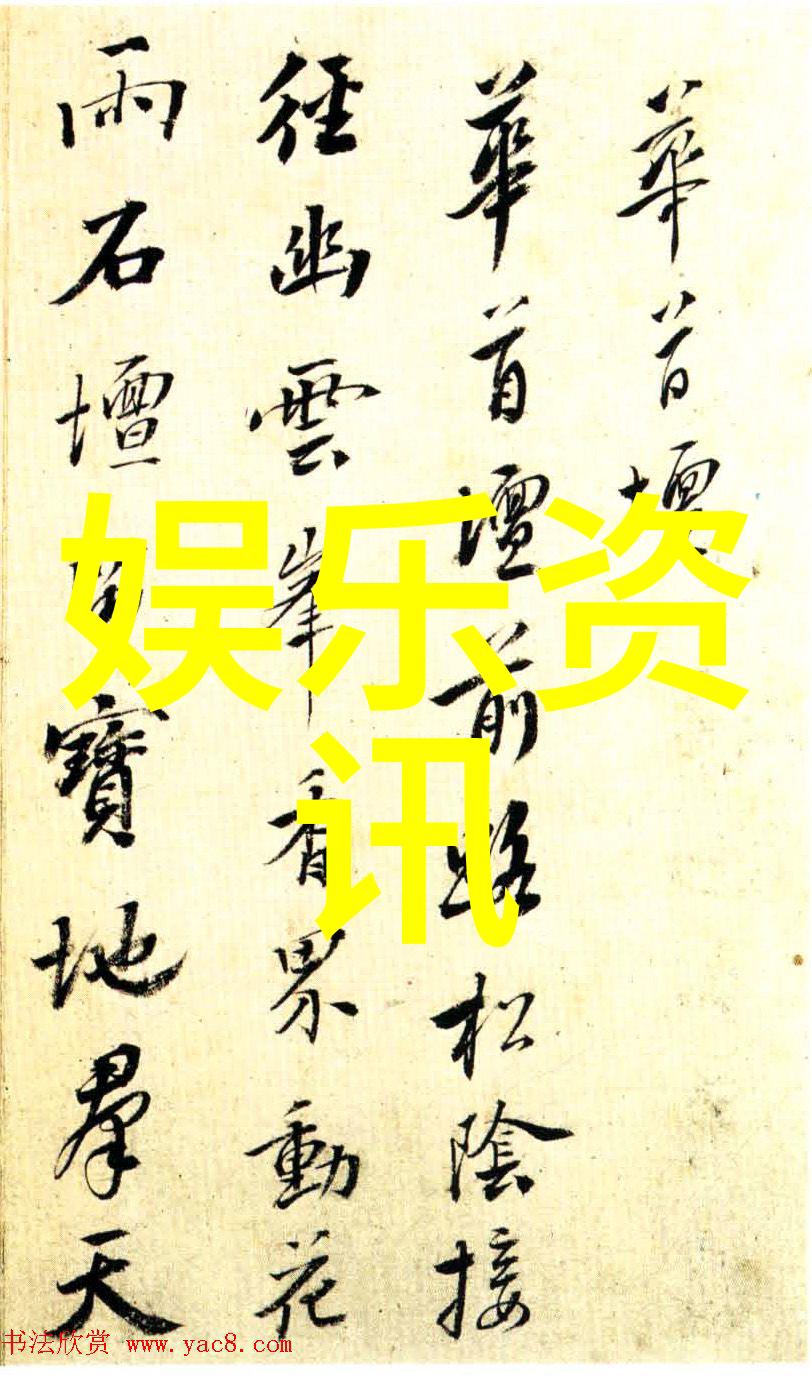 華首壇
華首壇前路松陰接
徑幽雲峯香界動花
雨石壇寶地羣天
娱乐资
讯
书法欣赏 www.yac8.com